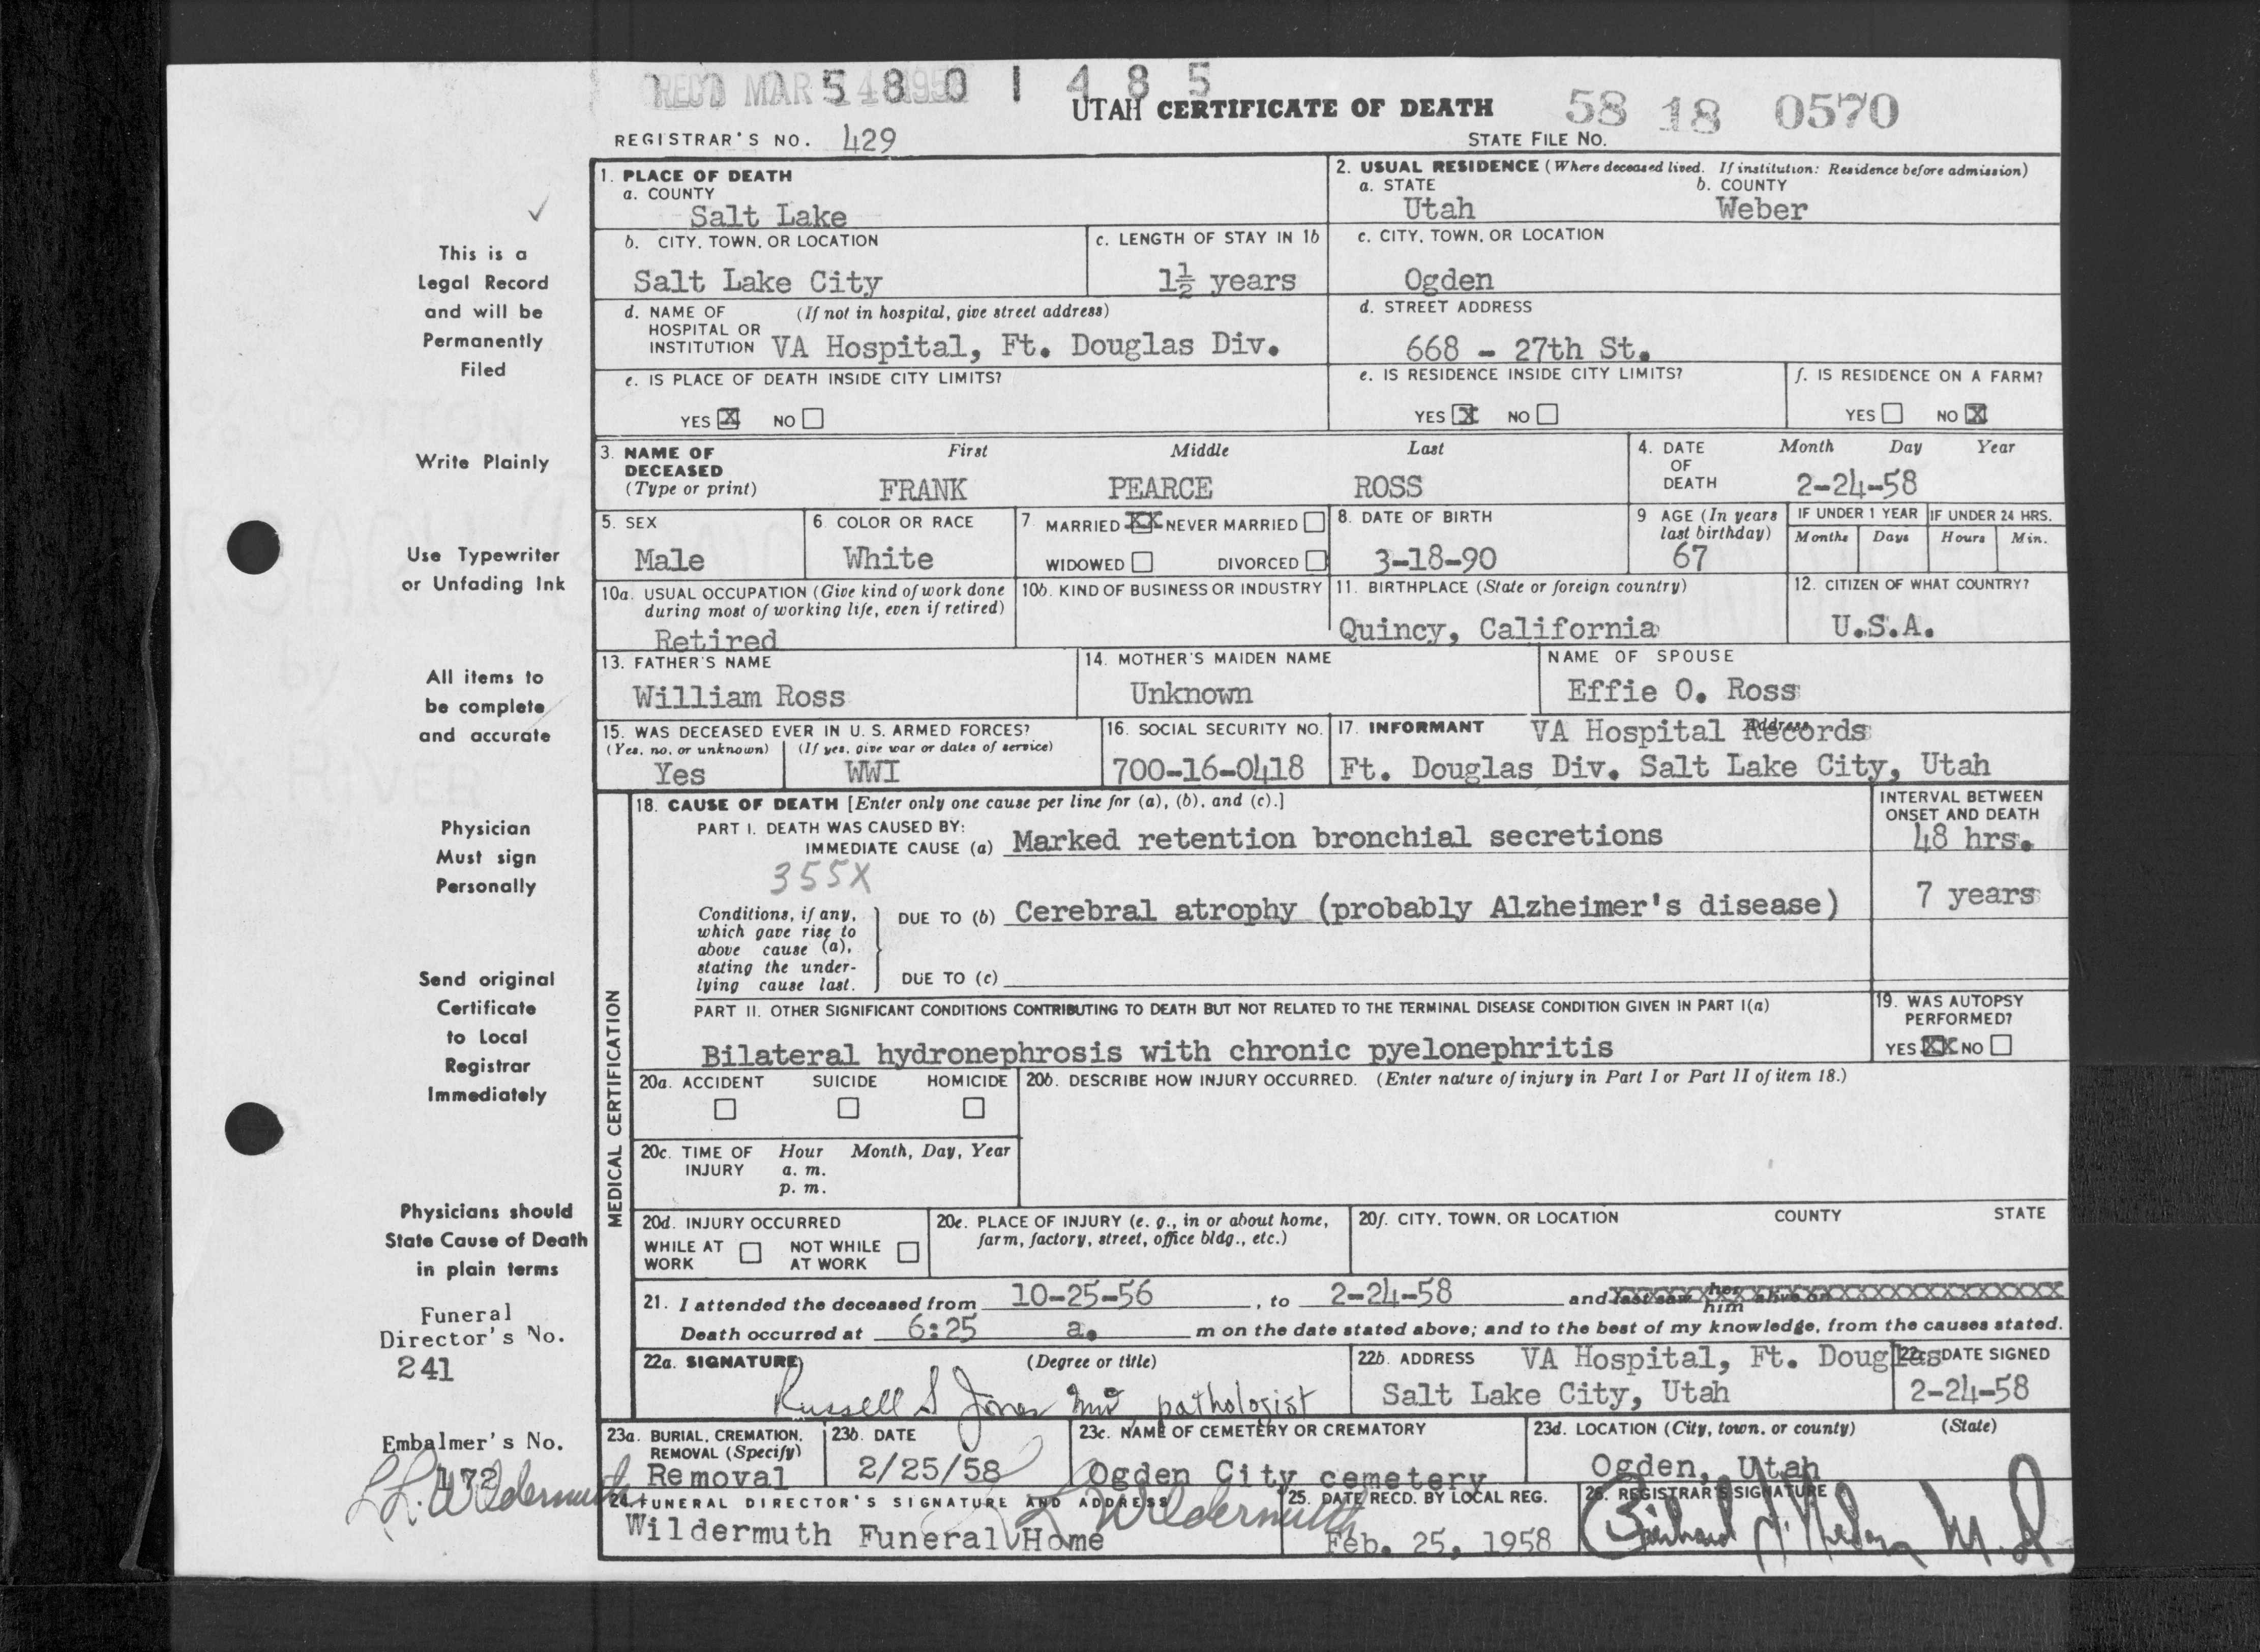 REC'D MAR 14 1958
5 8 0 1 4 8 5
UTAH CERTIFICATE OF DEATH
58 18 0570
REGISTRAR'S NO. 429
STATE FILE NO.
1. PLACE OF DEATH
a. COUNTY
Salt Lake
2. USUAL RESIDENCE (Where deceased lived. If institution: Residence before admission)
a. STATE b. COUNTY
Utah Weber
b. CITY, TOWN, OR LOCATION
Salt Lake City
c. LENGTH OF STAY IN 1b
1½ years
c. CITY, TOWN, OR LOCATION
Ogden
d. NAME OF (If not in hospital, give street address)
HOSPITAL OR
INSTITUTION VA Hospital, Ft. Douglas Div.
d. STREET ADDRESS
668 - 27th St.
e. IS PLACE OF DEATH INSIDE CITY LIMITS?
YES X NO
e. IS RESIDENCE INSIDE CITY LIMITS?
YES X NO
f. IS RESIDENCE ON A FARM?
YES NO X
3. NAME OF DECEASED (Type or print)
First Middle Last
FRANK PEARCE ROSS
4. DATE OF DEATH
Month Day Year
2-24-58
5. SEX
Male
6. COLOR OR RACE
White
7. MARRIED XX NEVER MARRIED
WIDOWED DIVORCED
8. DATE OF BIRTH
3-18-90
9 AGE (In years last birthday)
67
IF UNDER 1 YEAR
Months Days
IF UNDER 24 HRS.
Hours Min.
10a. USUAL OCCUPATION (Give kind of work done
during most of working life, even if retired)
Retired
10b. KIND OF BUSINESS OR INDUSTRY
11. BIRTHPLACE (State or foreign country)
Quincy, California
12. CITIZEN OF WHAT COUNTRY?
U.S.A.
13. FATHER'S NAME
William Ross
14. MOTHER'S MAIDEN NAME
Unknown
NAME OF SPOUSE
Effie O. Ross
15. WAS DECEASED EVER IN U. S. ARMED FORCES?
(Yes, no, or unknown) (If yes, give war or dates of service)
Yes WWI
16. SOCIAL SECURITY NO.
700-16-0418
17. INFORMANT Address
VA Hospital Records
Ft. Douglas Div. Salt Lake City, Utah
MEDICAL CERTIFICATION
18. CAUSE OF DEATH [Enter only one cause per line for (a), (b), and (c).]
INTERVAL BETWEEN
ONSET AND DEATH
PART I. DEATH WAS CAUSED BY:
IMMEDIATE CAUSE (a) Marked retention bronchial secretions
48 hrs.
355X
Conditions, if any,
which gave rise to
above cause (a),
stating the under-
lying cause last.
DUE TO (b) Cerebral atrophy (probably Alzheimer's disease)
7 years
DUE TO (c)
PART II. OTHER SIGNIFICANT CONDITIONS CONTRIBUTING TO DEATH BUT NOT RELATED TO THE TERMINAL DISEASE CONDITION GIVEN IN PART I(a)
Bilateral hydronephrosis with chronic pyelonephritis
19. WAS AUTOPSY
PERFORMED?
YES XX NO
20a. ACCIDENT SUICIDE HOMICIDE
20b. DESCRIBE HOW INJURY OCCURRED. (Enter nature of injury in Part I or Part II of item 18.)
20c. TIME OF INJURY
Hour Month, Day, Year
a. m.
p. m.
20d. INJURY OCCURRED
WHILE AT WORK NOT WHILE AT WORK
20e. PLACE OF INJURY (e. g., in or about home,
farm, factory, street, office bldg., etc.)
20f. CITY, TOWN, OR LOCATION COUNTY STATE
21. I attended the deceased from 10-25-56, to 2-24-58 and last saw her him alive on
Death occurred at 6:25 a. m on the date stated above; and to the best of my knowledge, from the causes stated.
22a. SIGNATURE (Degree or title)
Russell S Jones MD pathologist
22b. ADDRESS VA Hospital, Ft. Douglas
Salt Lake City, Utah
22c. DATE SIGNED
2-24-58
23a. BURIAL, CREMATION,
REMOVAL (Specify)
Removal
23b. DATE
2/25/58
23c. NAME OF CEMETERY OR CREMATORY
Ogden City cemetery
23d. LOCATION (City, town, or county) (State)
Ogden, Utah
24. FUNERAL DIRECTOR'S SIGNATURE AND ADDRESS
L L Wildermuth
Wildermuth Funeral Home
25. DATE RECD. BY LOCAL REG.
Feb. 25, 1958
26. REGISTRAR'S SIGNATURE
M.D.
This is a
Legal Record
and will be
Permanently
Filed
Write Plainly
Use Typewriter
or Unfading Ink
All items to
be complete
and accurate
Physician
Must sign
Personally
Send original
Certificate
to Local
Registrar
Immediately
Physicians should
State Cause of Death
in plain terms
Funeral
Director's No.
241
Embalmer's No.
472
L.L. Wildermuth